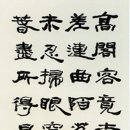 高閣客竟
差連曲陌
未忍掃眼
春盡所得